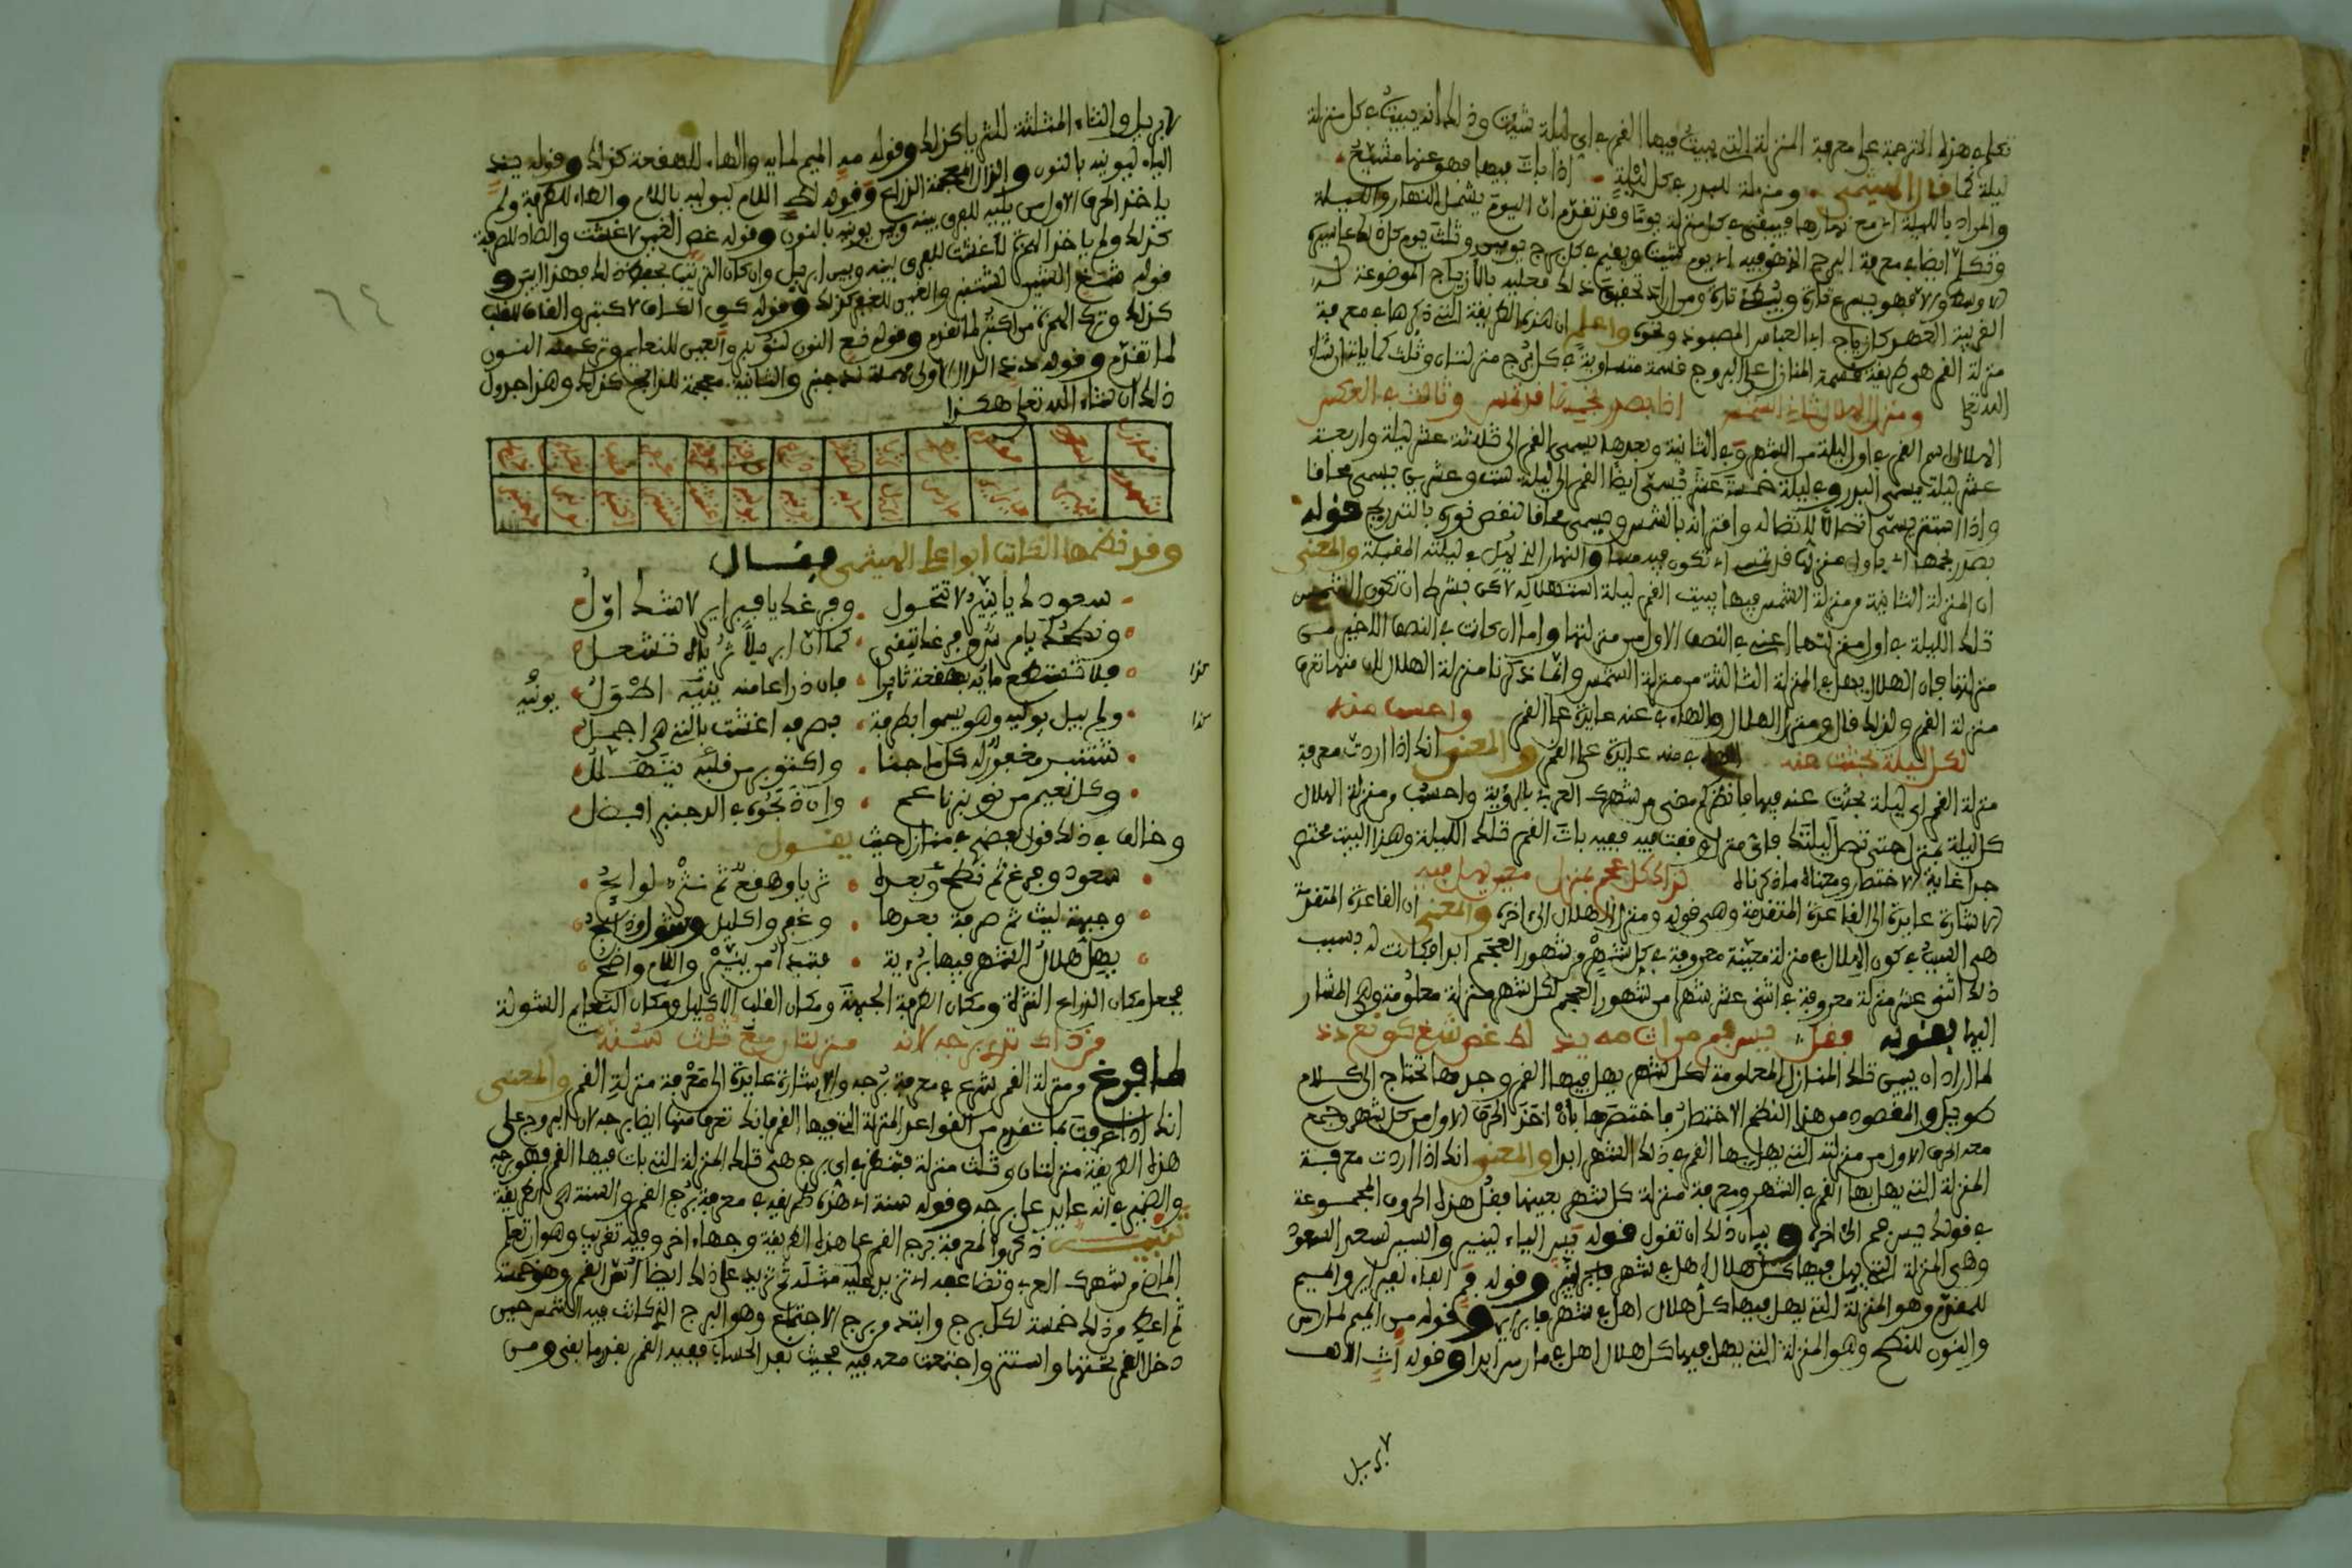 تكلم في هذه الترجمة على معرفة المنزلة التي يبيت فيها القمر في أي ليلة شئت وذلك أنه يبيت في كل منزلة
ليلة كما قال الهيثمي ومنزلة للبدر في كل ليلة إذا بات فيها فهو عنها مشيح
والمراد بالليلة أي مع نهارها فيبقى في كل منزلة يوما وقد تقدم أن اليوم يشمل النهار والليلة
وتكلم أيضا في معرفة البرج الذي هو فيه أي يوم شئت ويقيم في كل برج يومين وثلث يوم كل ذلك على سبيل
الأوسط وإلا فهو يسرع تارة ويبطئ تارة ومن أراد تحقيق ذلك فعليه بالأزياج الموضوعة له
القريبة العهد كأزياج ابي العباس المصمودي ونحوه واعلم أن هذه الطريقة التي ذكرها في معرفة
منزلة القمر هي طريقة قسمة المنازل على البروج قسمة متساوية في كل برج منزلتان وثلث كما يأتي إن شاء
الله تعلى ومنزل الهلال ثاني الشمس إذا بصدر نجمها قد تمس وثالث في العكس
الهلال اسم القمر في أول ليلة من الشهر وفي الثانية وبعدها يسمى القمر إلى ثلاثة عشر ليلة وأربعة
عشر ليلة يسمى البدر وفي ليلة خمسة عشر يسمى أيضا القمر إلى ليلة ست وعشرين يسمى محاقا
وإذا استتم يسمى اتصالا لاتصاله واقترانه بالشمس ويسمى محاقا لنقص نوره بالتدريج قوله
بصدر نجمها أي بأول منزلة قد تمس أي تكون فيه مسا والنهار الذي يهل في ليلته المقبلة والمعنى
أن المنزلة الثانية من منزلة الشمس فيها يبيت القمر ليلة استهلاله لاكن بشرط أن تكون الشمس
تلك الليلة في أول منزلتها أعني في النصف الأول من منزلتها وأما إن كانت في النصف الأخير من
منزلتها فإن الهلال يهل في المنزلة الثالثة من منزلة الشمس وإنما ذكرنا منزلة الهلال لأن منها تعرف
منزلة القمر ولذلك قال ومنزل الهلال والهاء في عنه عايدة على القمر واحسب منه
لكل ليلة بحثت عنه الهاء في منه عايدة على القمر والمعنى أنك إذا أردت معرفة
منزلة القمر أي ليلة بحثت عنه فيها فانظر كم مضى من شهرك العربي بالرؤية واحسب من منزلة الهلال
كل ليلة بمنزل حتى تصل ليلتك فأي منزل وقفت فيه ففيه بات القمر تلك الليلة وهذا البيت مختصر
جدا غاية الاختصار ومعناه ما ذكرناه لذاك كل عجم بمنزل معين يهل فيه
الإشارة عايدة إلى القاعدة المتقدمة وهي قوله ومنزل الهلال إلى آخره والمعنى أن القاعدة المتقدمة
هي السبب في كون الهلال في منزلة معينة معروفة في كل شهر من شهور العجم أبدا فكانت له بسبب
ذلك اثني عشر منزلة معروفة في اثني عشر شهرا من شهور العجم لكل شهر منزلة معلومة وهي المشار
إليها بقوله فقل يس فم من اث مه يذ لط غص شغ كق نع دذ
لما أراد أن يبين تلك المنازل المعلومة لكل شهر يهل فيها القمر وجدها تحتاج إلى كلام
طويل والمقصود من هذا النظم الاختصار فاختصرها بأن أخذ الحرف الأول من كل شهر وجمع
معه الحرف الأول من منزلته التي يهل بها القمر في ذلك الشهر أبدا والمعنى أنك إذا أردت معرفة
المنزلة التي يهل بها القمر في الشهر ومعرفة منزلة كل شهر بعينها فقل هذه الحروف المجموعة
في قولك يس فم إلى آخره وبيان ذلك أن تقول قوله يس الياء لينير والسين لسعد السعود
وهي المنزلة التي يهل فيها كل هلال أهل في شهر ينير وقوله فم الفاء لفبراير والميم
للمقدم وهو المنزلة التي يهل فيها كل هلال أهل في شهر فبراير وقوله من الميم لمارس
والنون للنطح وهو المنزلة التي يهل فيها كل هلال أهل في مارس أبدا وقوله اث الالف
لابريل
لابريل والثاء المثلثة للثريا كذلك وقوله مه الميم لمايه والهاء للهقعة كذلك وقوله يذ
الياء ليونيه بالنون والذال المعجمة الذراع وقوله لط اللام ليوليه باللام والطاء للطرفة ولم
يأخذ الحرف الأول من يليه للفرق بينه وبين يونيه بالنون وقوله غص الغين لاغشت والصاد للصرفة
كذلك ولم يأخذ الهمزة لأغشت للفرق بينه وبين ابريل وإن كان الترتيب يحفظ ذلك فهذا أبين و
قوله شغ الشين لشتنبر والغين للغفر كذلك وقوله كق الكاف لاكتبر والقاف للقلب
كذلك وترك الهمزة من اكتبر لما تقدم وقوله نع النون لنونبر والعين للنعايم وترك منه النون
لما تقدم وقوله دذ الدال الأولى مهملة لدجنبر والثانية معجمة للذابح كذلك وهذا جدول
ذلك إن شاء الله تعلى هكذا
وقد نظمها الفقيه أبو علي الهيثمي فقال
سعود لدى ينير لا تتحول وفرغ لدى فبراير لا شك أول
ونطح لدى مارس وفرغ يقتفى كما ان ابريلا ثرياه تشعل
فلا تقتطع مايه بهقعة ثائرا فإن ذراعا منه ينيه أطول يونيه
كذا
ولم يبل يوليه وهو يسموا بطرفة بصرفه اغشت بالتي هي أجمل
كذا
شتنبر مغفور له كل ما جنا واكتوبر من قلبه يتهلل
وكل نعيم من نونبر ناعم وإن ذبحوه في الدجنبر أفضل
وخالف في ذلك قول بعضهم في منازل حيث يقول
سعود وفرغ ثم نطح وبعده ثريا وهقع ثم نثره لوايح
وجبهة ليث ثم صرفة بعدها وغفر واكليل وشوله ذابح
يهل هلال الشهر فيها برؤية فتبدا من ينير والامر واضح
فجعل مكان الذراع النثرة ومكان الطرفة الجبهة ومكان القلب الإكليل ومكان النعايم الشولة
من ذاك تدري برجه لأنه منزلتان مع ثلث سنة
لما فرغ من منزلة القمر شرع في معرفة برجه والإشارة عايدة إلى معرفة منزلة القمر والمعنى
أنك إذا عرفت بما تقدم من القواعد المنزلة التي فيها القمر فإنك تعرف منها أيضا برجه لأن البروج على
هذه الطريقة منزلتان وثلث منزلة فتنظر في أي برج هي تلك المنزلة التي بات فيها القمر فهو برجه
والضمير في انه عايد على برجه وقوله سنة أي هذه طريقة في معرفة برج القمر والسنة هي الطريقة
تنبيه ذكروا لمعرفة برج القمر على هذه الطريقة وجها آخر وفيه تقريب وهو أن تعلم
الماضي من شهرك العربي وتضاعفه أي تزيد عليه مثله ثم تزيد على ذلك أيضا أس القمر وهو خمسة
ثم اعط من ذلك خمسة لكل برج وابتد من برج الاجتماع وهو البرج الذي كانت فيه الشمس حين
دخل القمر تحتها واستتر واجتمعت معه فيه فحيث نفد الحساب ففيه القمر بقدر ما بقي ومن
٦٤